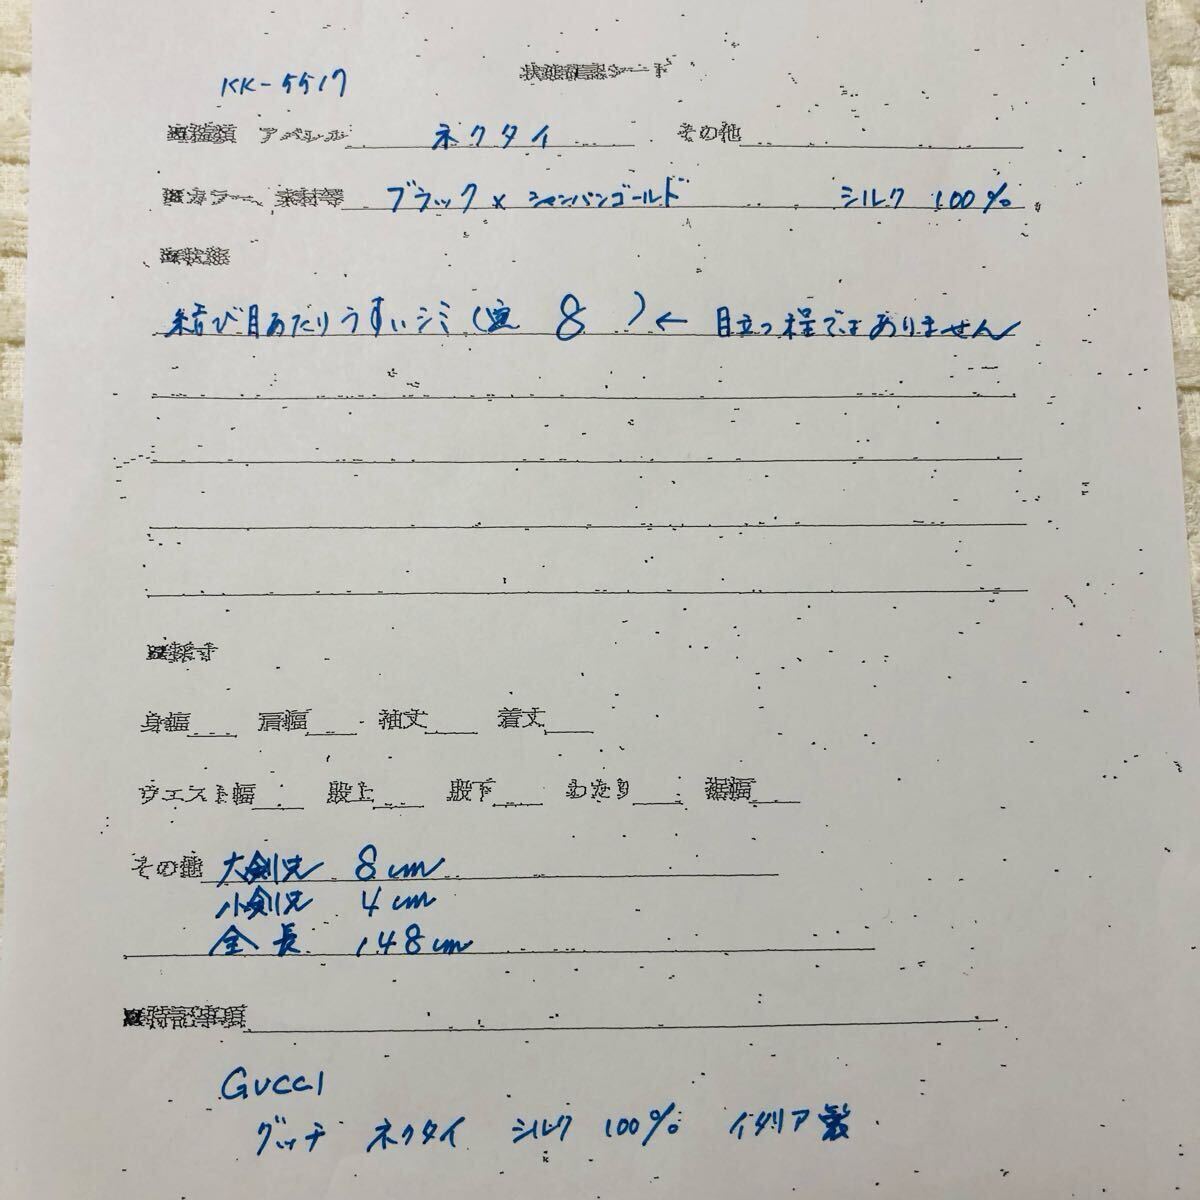 状態確認シート
KK-5517
■種類 アパレル ネクタイ その他
■カラー、素材等 ブラック×シャンパンゴールド シルク 100%
■状態
結び目あたりうすいシミ( 8 )← 目立つ程ではありません
■採寸
身幅 肩幅 袖丈 着丈
ウエスト幅 股上 股下 わたり 裾幅
その他 大剣 8cm
小剣 4cm
全長 148cm
■特記事項
GUCCI
グッチ ネクタイ シルク 100% イタリア製